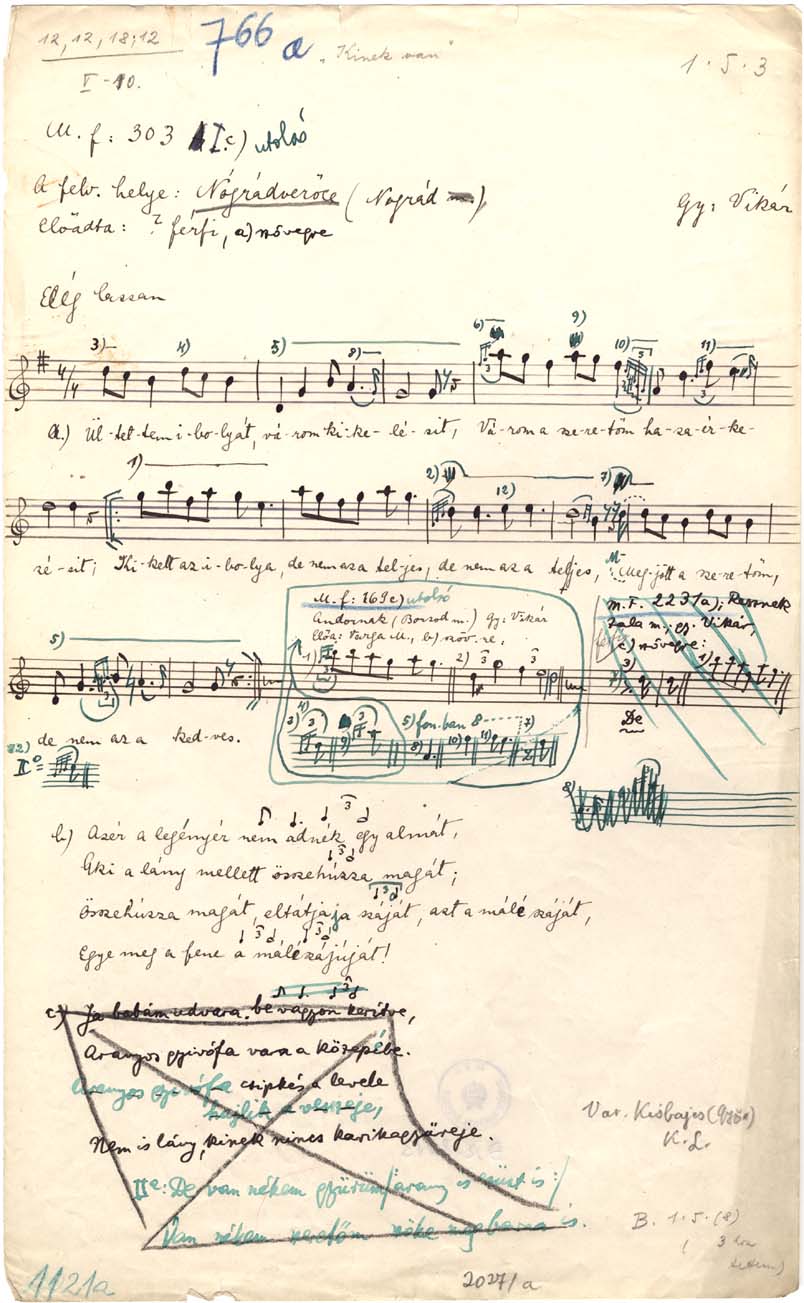 12, 12, 18; 12
766 a
"Kinek van"
1 · 5 · 3
V - 10.
M. f: 303 I.c) utolsó
A felv. helye: Nógrádverőce (Nográd m.)
Gy: Vikár
Előadta: ? férfi, a) nővegre
Elég lassan
3) 4) 5) 8) 6) 9) 10) 11)
4/4
a.) Ül-tet-tem i-bo-lyát, vá-rom ki-ke-lé-sit, Vá-rom a sze-re-tőm ha-za-ér-ke-
1) 2) 12) 7)
zé-sit; Ki-kelt az i-bo-lya, de nem az a tel-jes, de nem az a teljes, Meg-jött a sze-re-tőm,
M. f: 769c) utolsó
Andornak (Borsod m.) Gy: Vikár
Előa: Varga M., b) szöv. re,
M.F. 2231a); Resznek
Zala m.; gy. Vikár,
c) nővegre:
5) 1) 2) 3) 1)
3) 4) 9) 5) fon.ban 8 7)
8) 10) 11)
De
de nem az a ked-ves.
12) IIº =
8)
b.) Azér a legényér nem adnék egy almát,
Aki a lány mellett összehúzza magát;
Összehúzza magát, eltátjaja száját, azt a málé száját,
Egye meg a fene a málészájúját!
c) Ja babám udvara, be vagyon kerítve,
Aranyos gyivófa van a közepébe.
Aranyos gyivófa csipkés a levele
hajlik a vesszeje,
Nem is lány, kinek nincs karikagyűreje.
IIe: De van nékem gyűrűm / arany is ezüst is :/
Van nékem szeretőm szőke meg barna is.
Var. Kisbajcs (Győr)
K. L.
B. 1 · 5 · (8)
1121a
2027/a